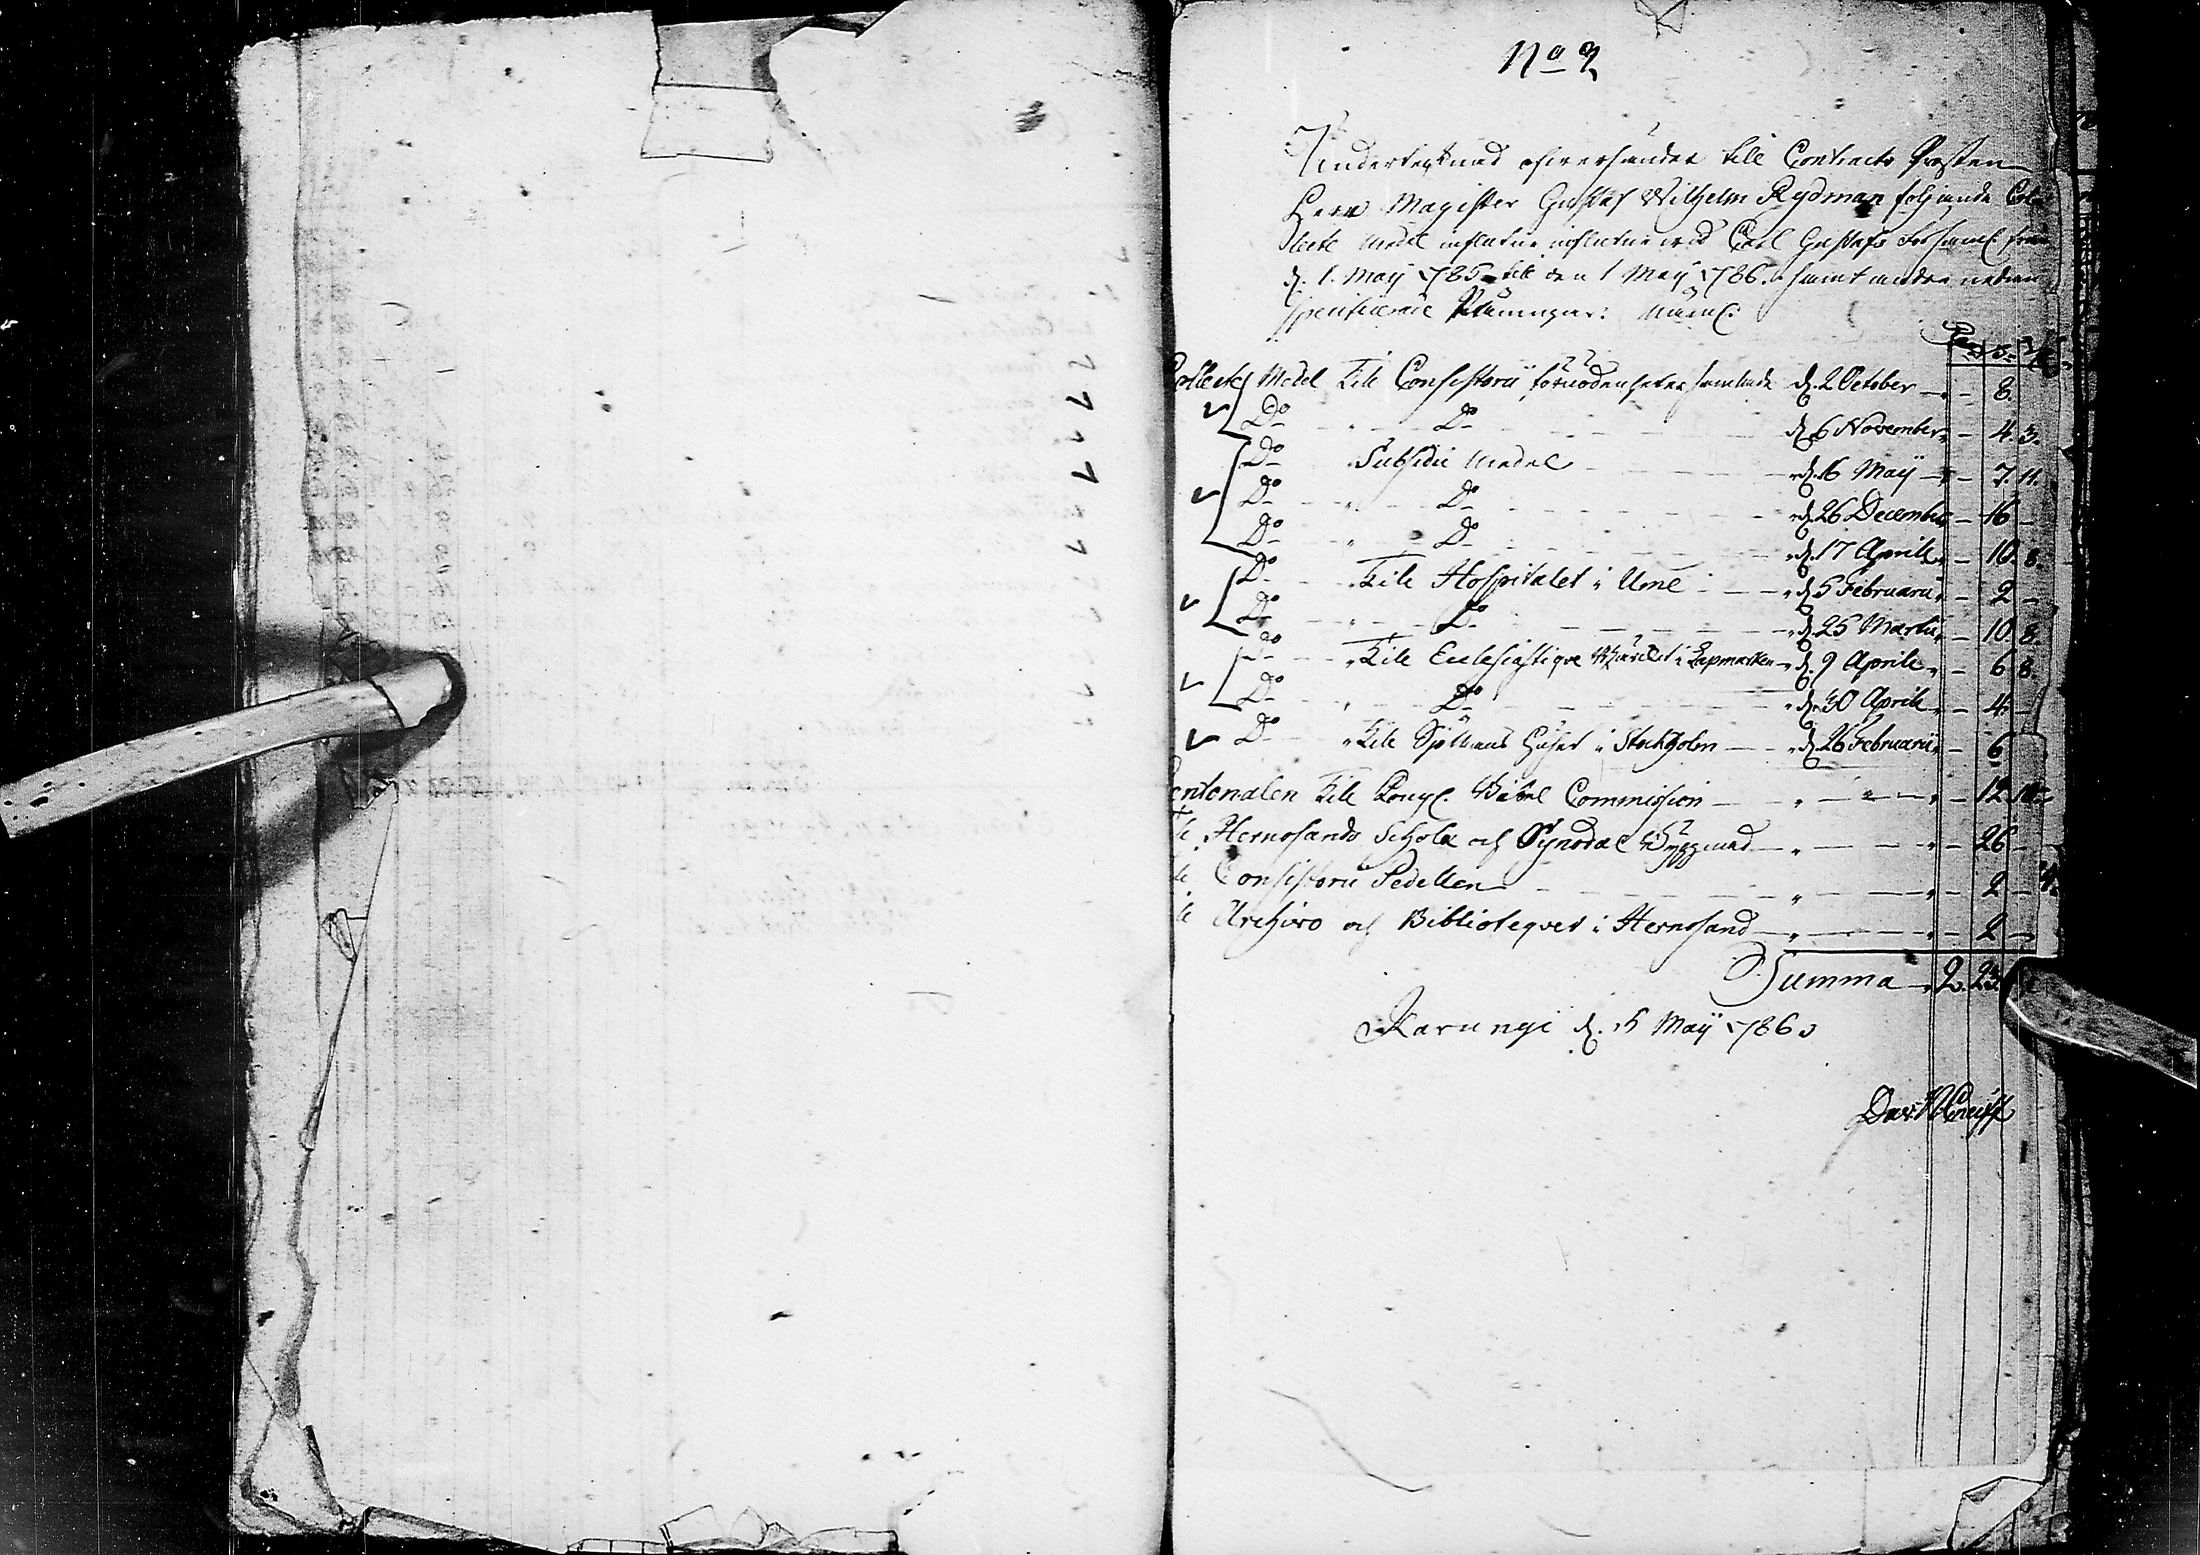 No 2
Undertecknad öfversänder till Contracts Prosten
Herr Magister Gustaf Wilhelm Rydman följande Col-
lecte Medel influtne wid Carl Gustafs Församl. från
d. 1. Maij 1785 till den 1 Maij 1786. samt andre nedan
specificerade Penningar. Näml.
Collecte Medel till Consistorii förnödenheter samlade d. 2 October — 8.
Do Do d. 6 November — 4. 3.
Do Subsidii Medel d. 16 Maij — 7. 11.
Do Do d. 26 December — 16 —
Do Do d. 17 Aprilis — 10. 8.
Do till Hospitalet i Ume d. 5 Februarii — 2 —
Do Do d. 25 Martii — 10. 8.
Do till Ecclesiastique Wärcket i Lapmarken d. 9 Aprilis — 6 8.
Do Do d. 30 Aprilis — 4. —
Do till Sjöllens Huset i Stockholm d. 26 Februarii — 6
entonalen till Kongl. Bibel Commission — 12
Hernosands Schola och Synodal Byggnad — 26 —
Consistorii Pedellen — 2 —
Archivo och Biblioteqvet i Hernosand — 2 —
Summa 2. 23.
Karungi d. 5 Maij 1786.